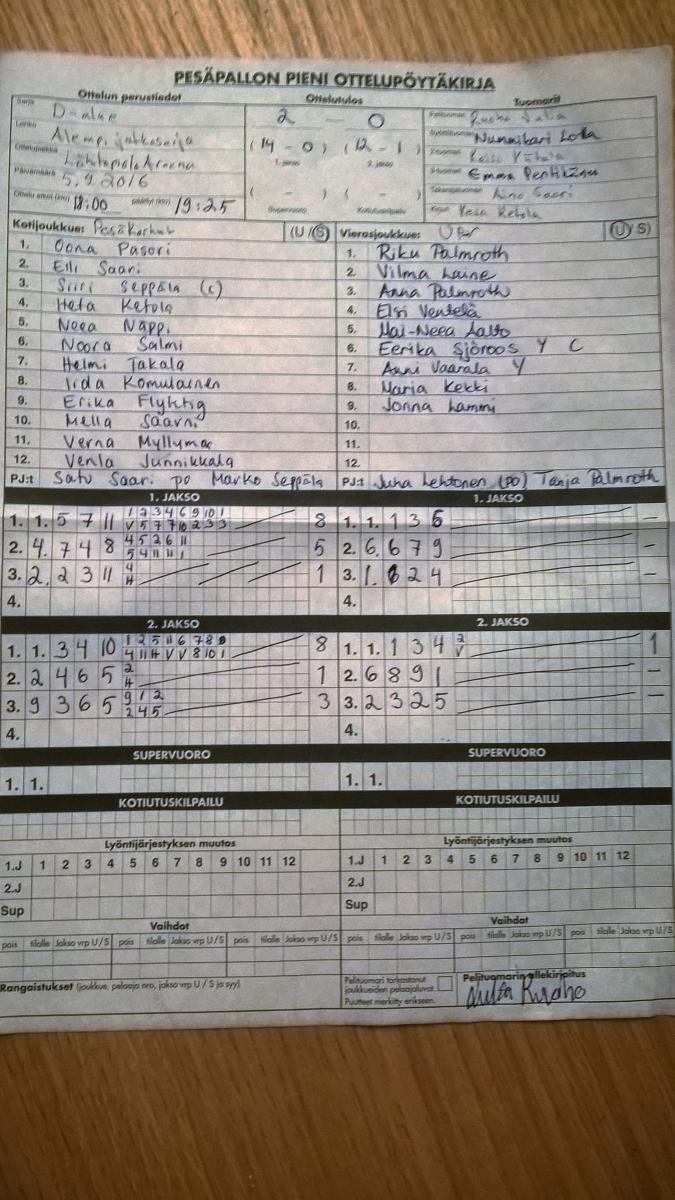 PESÄPALLON PIENI OTTELUPÖYTÄKIRJA
Ottelun perustiedot Ottelutulos Tuomarit
Sarja D-alue 2 - 0 Pelituomari
Alempi jatkosarja (14 - 0) (12 - 1) Nummikari Lotta
1. jakso 2. jakso
Päivämäärä 5.9.2016 ( - ) ( - ) Emma Penttinen
Ottelu alkoi (klo) 18:00 päättyi (klo) 19:25 Supervuoro Kotiutuskilpailu Aino Saari
Kirjuri Vesa Ketola
Kotijoukkue: (U/S) Vierasjoukkue: (U/S)
1. Oona Pasori 1. Riku Palmroth
2. Elli Saari 2. Vilma Laine
3. Siiri Seppälä (c) 3. Anna Palmroth
4. Heta Ketola 4. Elsi Ventelä
5. Neea Nappi 5. Mai-Neea Aalto
6. Noora Salmi 6. Eerika Sjöroos Y C
7. Helmi Takala 7. Anni Vaarala Y
8. Iida Komulainen 8. Marja Kekki
9. Erika Flyktig 9. Jonna Lammi
10. Mella Saarni 10.
11. Verna Myllymäe 11.
12. Venla Junnikkala 12.
PJ:t Satu Saari po Marko Seppälä PJ:t Juha Lehtonen (PO) Tanja Palmroth
1. JAKSO 1. JAKSO
1. 1. 5 7 11 1 2 3 4 6 9 10 1 8 1. 1. 1 3 6 –
V 5 7 7 10 2 3 3
2. 4. 7 4 8 4 5 2 6 11 5 2. 6. 6 7 9 –
5 4 11 11 1
3. 2. 2 3 11 4 1 3. 1. 6 2 4 –
H
4. 4.
2. JAKSO 2. JAKSO
1. 1. 3 4 10 1 2 5 11 6 7 8 9 8 1. 1. 1 3 4 2 1
4 11 H V V 8 10 1 V
2. 2 4 6 5 2 1 2. 6 8 9 1 –
H
3. 9 3 6 5 9 1 2 3 3. 2 3 2 5 –
2 4 5
4. 4.
SUPERVUORO SUPERVUORO
1. 1. 1. 1.
KOTIUTUSKILPAILU KOTIUTUSKILPAILU
Lyöntijärjestyksen muutos Lyöntijärjestyksen muutos
1.J 1 2 3 4 5 6 7 8 9 10 11 12 1.J 1 2 3 4 5 6 7 8 9 10 11 12
2.J 2.J
Sup Sup
Vaihdot Vaihdot
pois tilalle Jakso vrp U/S pois tilalle Jakso vrp U/S pois tilalle Jakso vrp U/S pois tilalle Jakso vrp U/S pois tilalle Jakso vrp U/S pois tilalle Jakso vrp U/S
Rangaistukset (joukkue, pelaaja nro, jakso vrp U / S ja syy) Pelituomari tarkastanut joukkueiden pelaajaluvat. Puutteet merkitty erikseen. Pelituomarin allekirjoitus